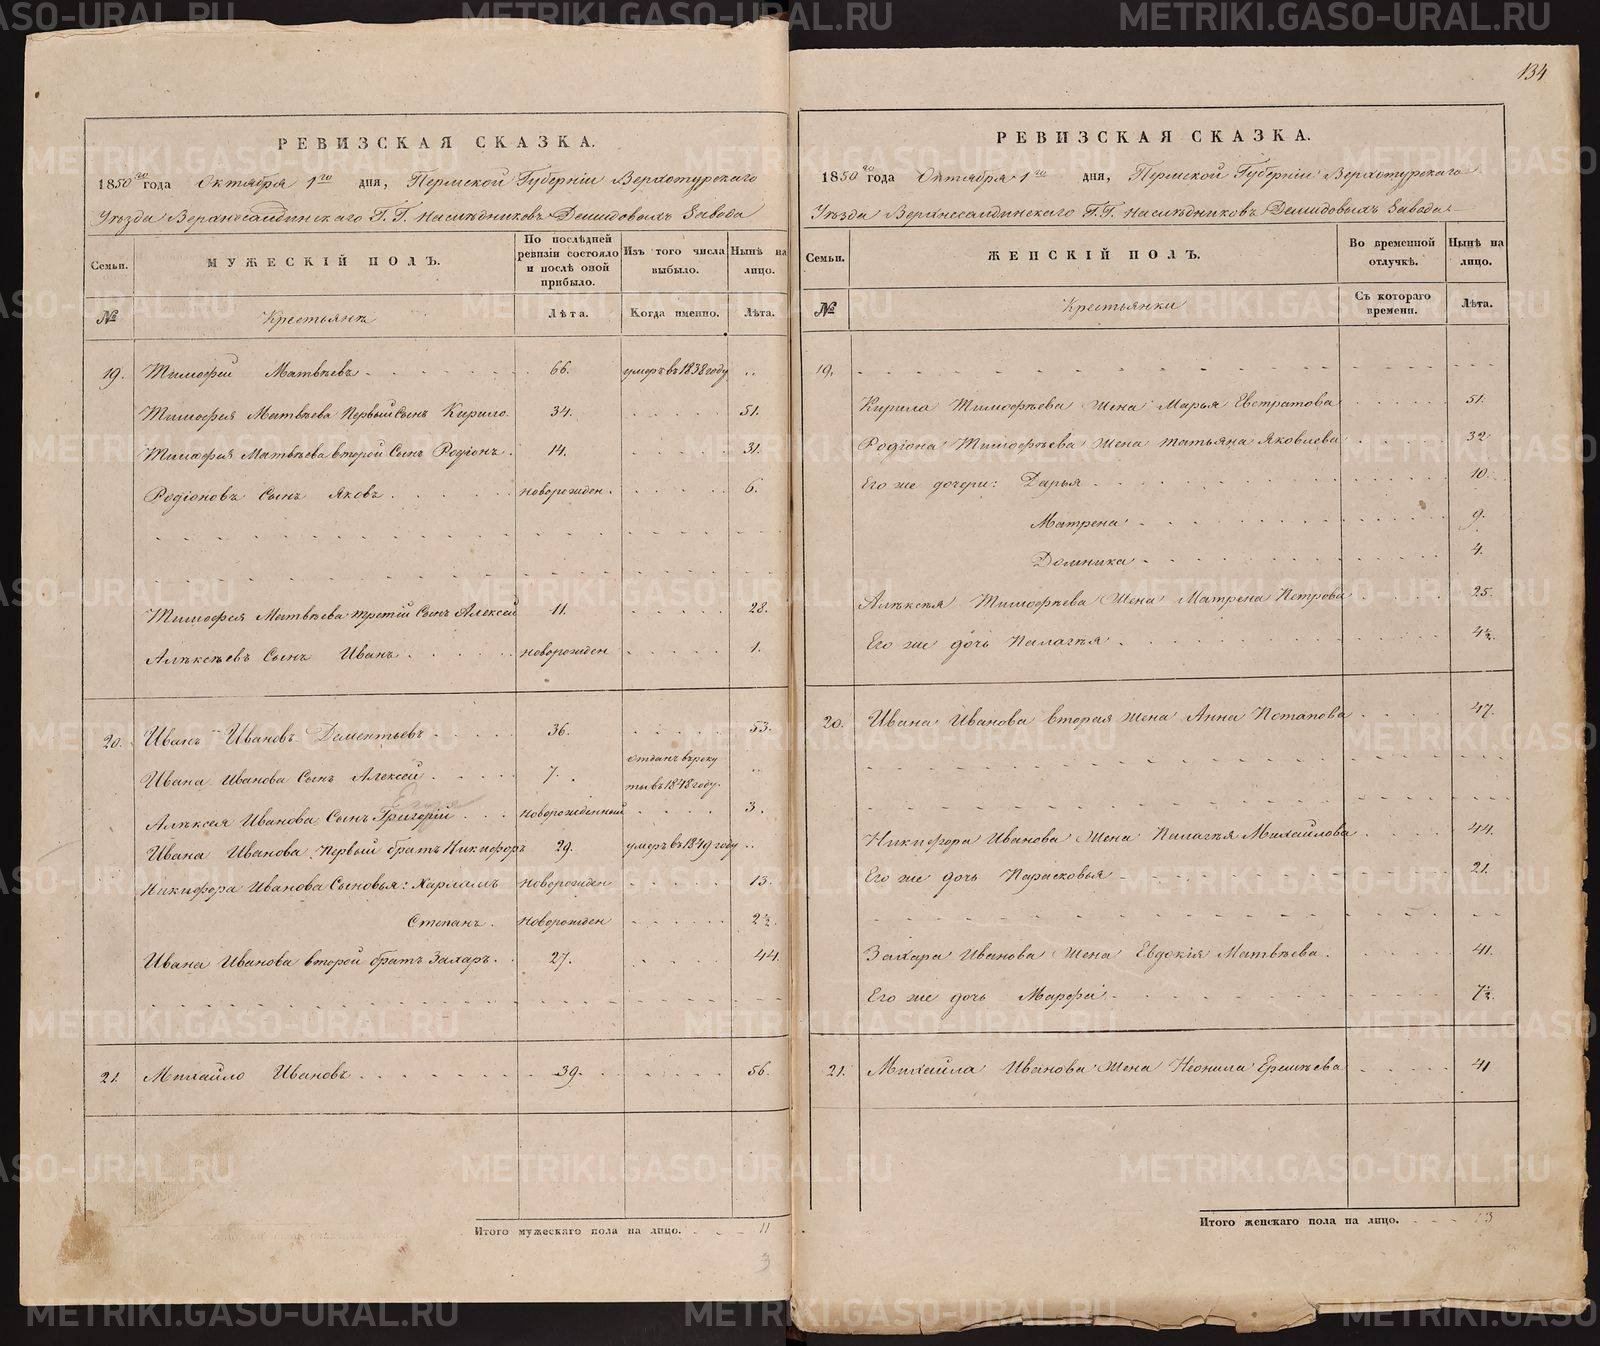 134
РЕВИЗСКАЯ СКАЗКА.
1850го года Октября 1го дня, Пермской Губерніи Верхотурскаго
Уѣзда Верхнесалдинскаго Г.Г. Наслѣдниковъ Демидовыхъ Завода
Семьи.
МУЖЕСКІЙ ПОЛЪ.
По послѣдней ревизіи состояло и послѣ оной прибыло.
Изъ того числа выбыло.
Нынѣ на лицо.
№
Крестьянъ
Лѣта.
Когда именно.
Лѣта.
19. Тимофей Матвѣевъ 66. умеръ въ 1838 году
Тимофея Матвѣева Первый Сынъ Кирило 34. 51.
Тимофея Матвѣева второй Сынъ Родіонъ. 14. 31.
Родіоновъ Сынъ Яковъ новорожден. 6.
Тимофея Матвѣева третій Сынъ Алексей 11. 28.
Алѣксѣевъ Сынъ Иванъ новорожден 1.
20. Иванъ Ивановъ Дементьевъ 36. 53.
Ивана Иванова Сынъ Алексей 7. отданъ въ рекруты въ 1848 году.
Алѣксея Иванова Сынъ Григорій новорожденный 3.
Ивана Иванова Первый братъ Никифоръ 29. умеръ въ 1849 году
Никифора Иванова Сыновья: Харламъ новорожден 13.
Степанъ. новорожден 2½.
Ивана Иванова второй братъ Захаръ. 27. 44.
21. Михайло Ивановъ 39. 56.
Итого мужескаго пола на лицо. 11
3
РЕВИЗСКАЯ СКАЗКА.
1850го года Октября 1го дня, Пермской Губерніи Верхотурскаго
Уѣзда Верхнесалдинскаго Г.Г. Наслѣдниковъ Демидовыхъ Завода
Семьи.
ЖЕНСКІЙ ПОЛЪ.
Во временной отлучкѣ.
Нынѣ на лицо.
№
Крестьянки
Съ котораго времени.
Лѣта.
19.
Кирила Тимофѣева Жена Марья Евстратова 51.
Родіона Тимофѣева Жена Татьяна Яковлева 32
Его же дочери: Дарья 10.
Матрена 9.
Домника 4.
Алѣксѣя Тимофѣева Жена Матрена Петрова 25.
Его же дочь Палагѣя 4½.
20. Ивана Иванова вторая жена Анна Потапова 47.
Никифора Иванова Жена Палагѣя Михайлова 44.
Его же дочь Парасковья 21.
Захара Иванова Жена Евдокія Матвѣева. 41.
Его же дочь Марфа 7½.
21. Михайла Иванова Жена Неонила Еремѣева 41
Итого женскаго пола на лицо. 13
METRIKI.GASO-URAL.RU